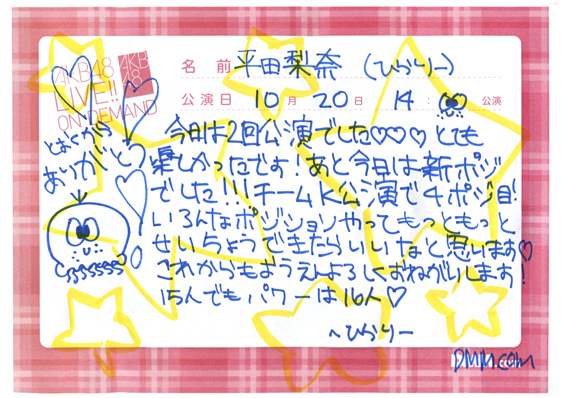 AKB48
LIVE!!
ON DEMAND
AKB
48
名 前 平田梨奈 (ひらりー)
公演日 10月 20日 14: 公演
とおくから
ありがとう
今日は2回公演でした♡♡♡とても
楽しかったです!あと今日は新ポジ
でした!!!チームK公演で4ポジ目!
いろんなポジションやってもっともっと
せいちょうできたらいいなと思います♡
これからもおうえんよろしくおねがいします!
15人でもパワーは16人♡
~ひらりー
DMM.com